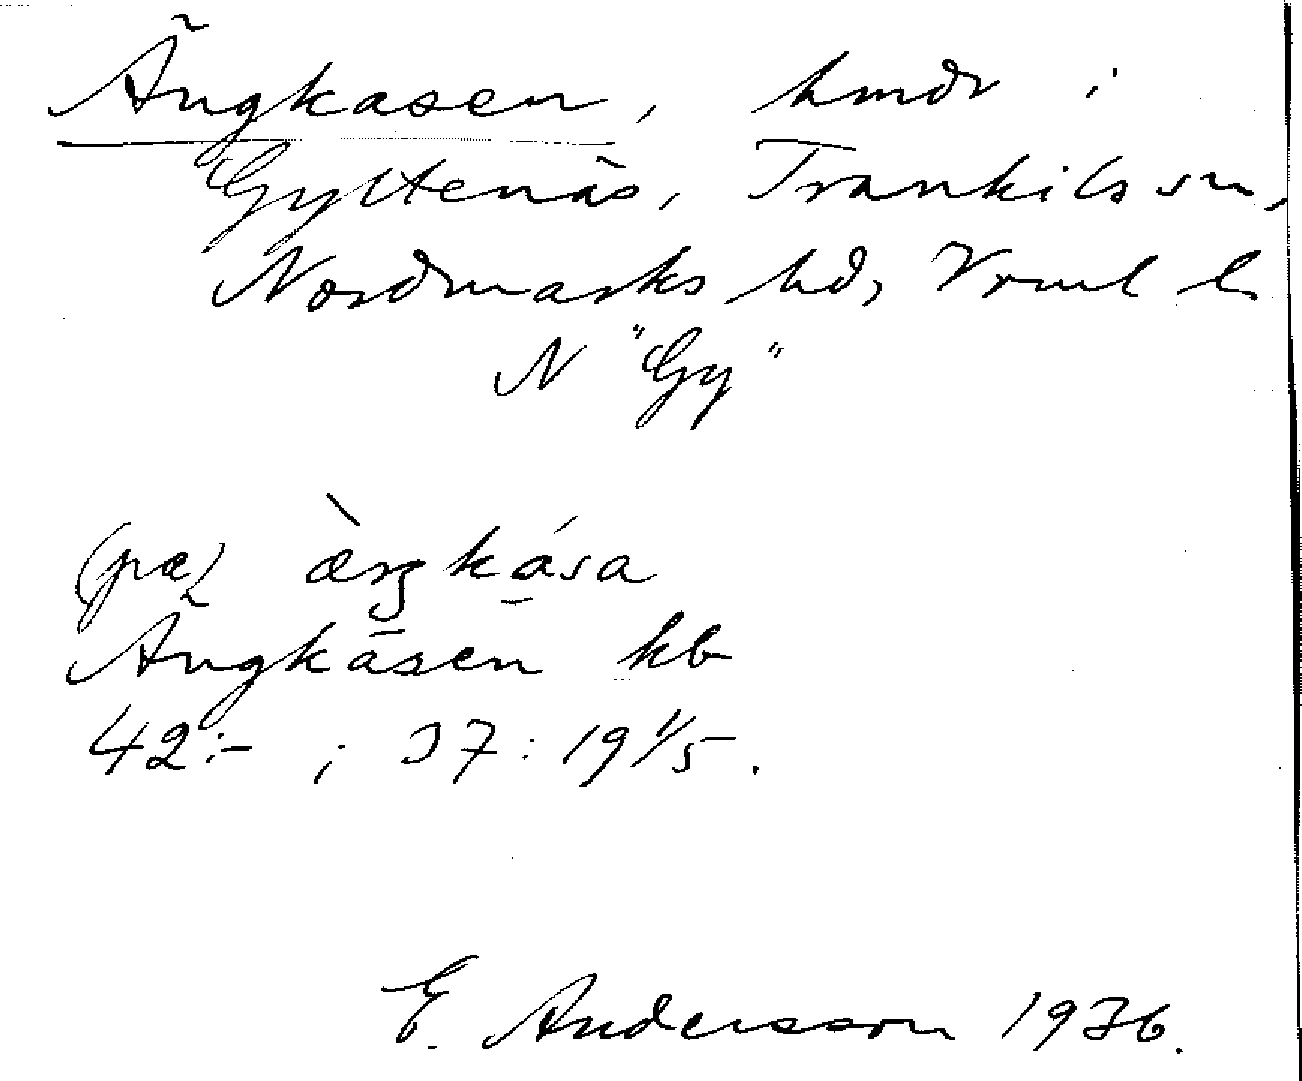 Ängkasen, hmdr i
Gyltenäs, Trankils sn,
Nordmarks hd, Vrml l.
N "Gy"
(pæ) æ̀ŋkása
Ängkāsen kb
42:- ; 37:19 1/5.
E. Andersson 1936.